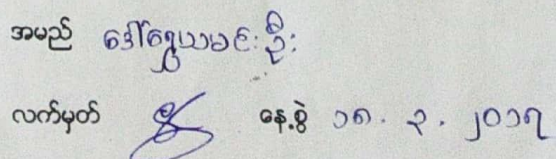 အမည် ဒေါ်ရွှေယမင်းဦး
လက်မှတ် နေ့စွဲ ၁၈.၃.၂၀၁၇